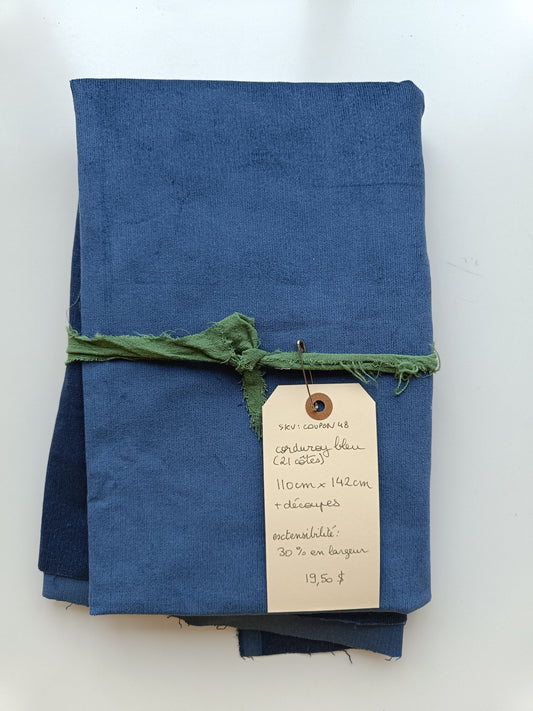 SKU: COUPON 48
corduroy bleu
(21 côtes)
110cm x 142cm
+ découpes
extensibilité:
30 % en largeur
19,50 $